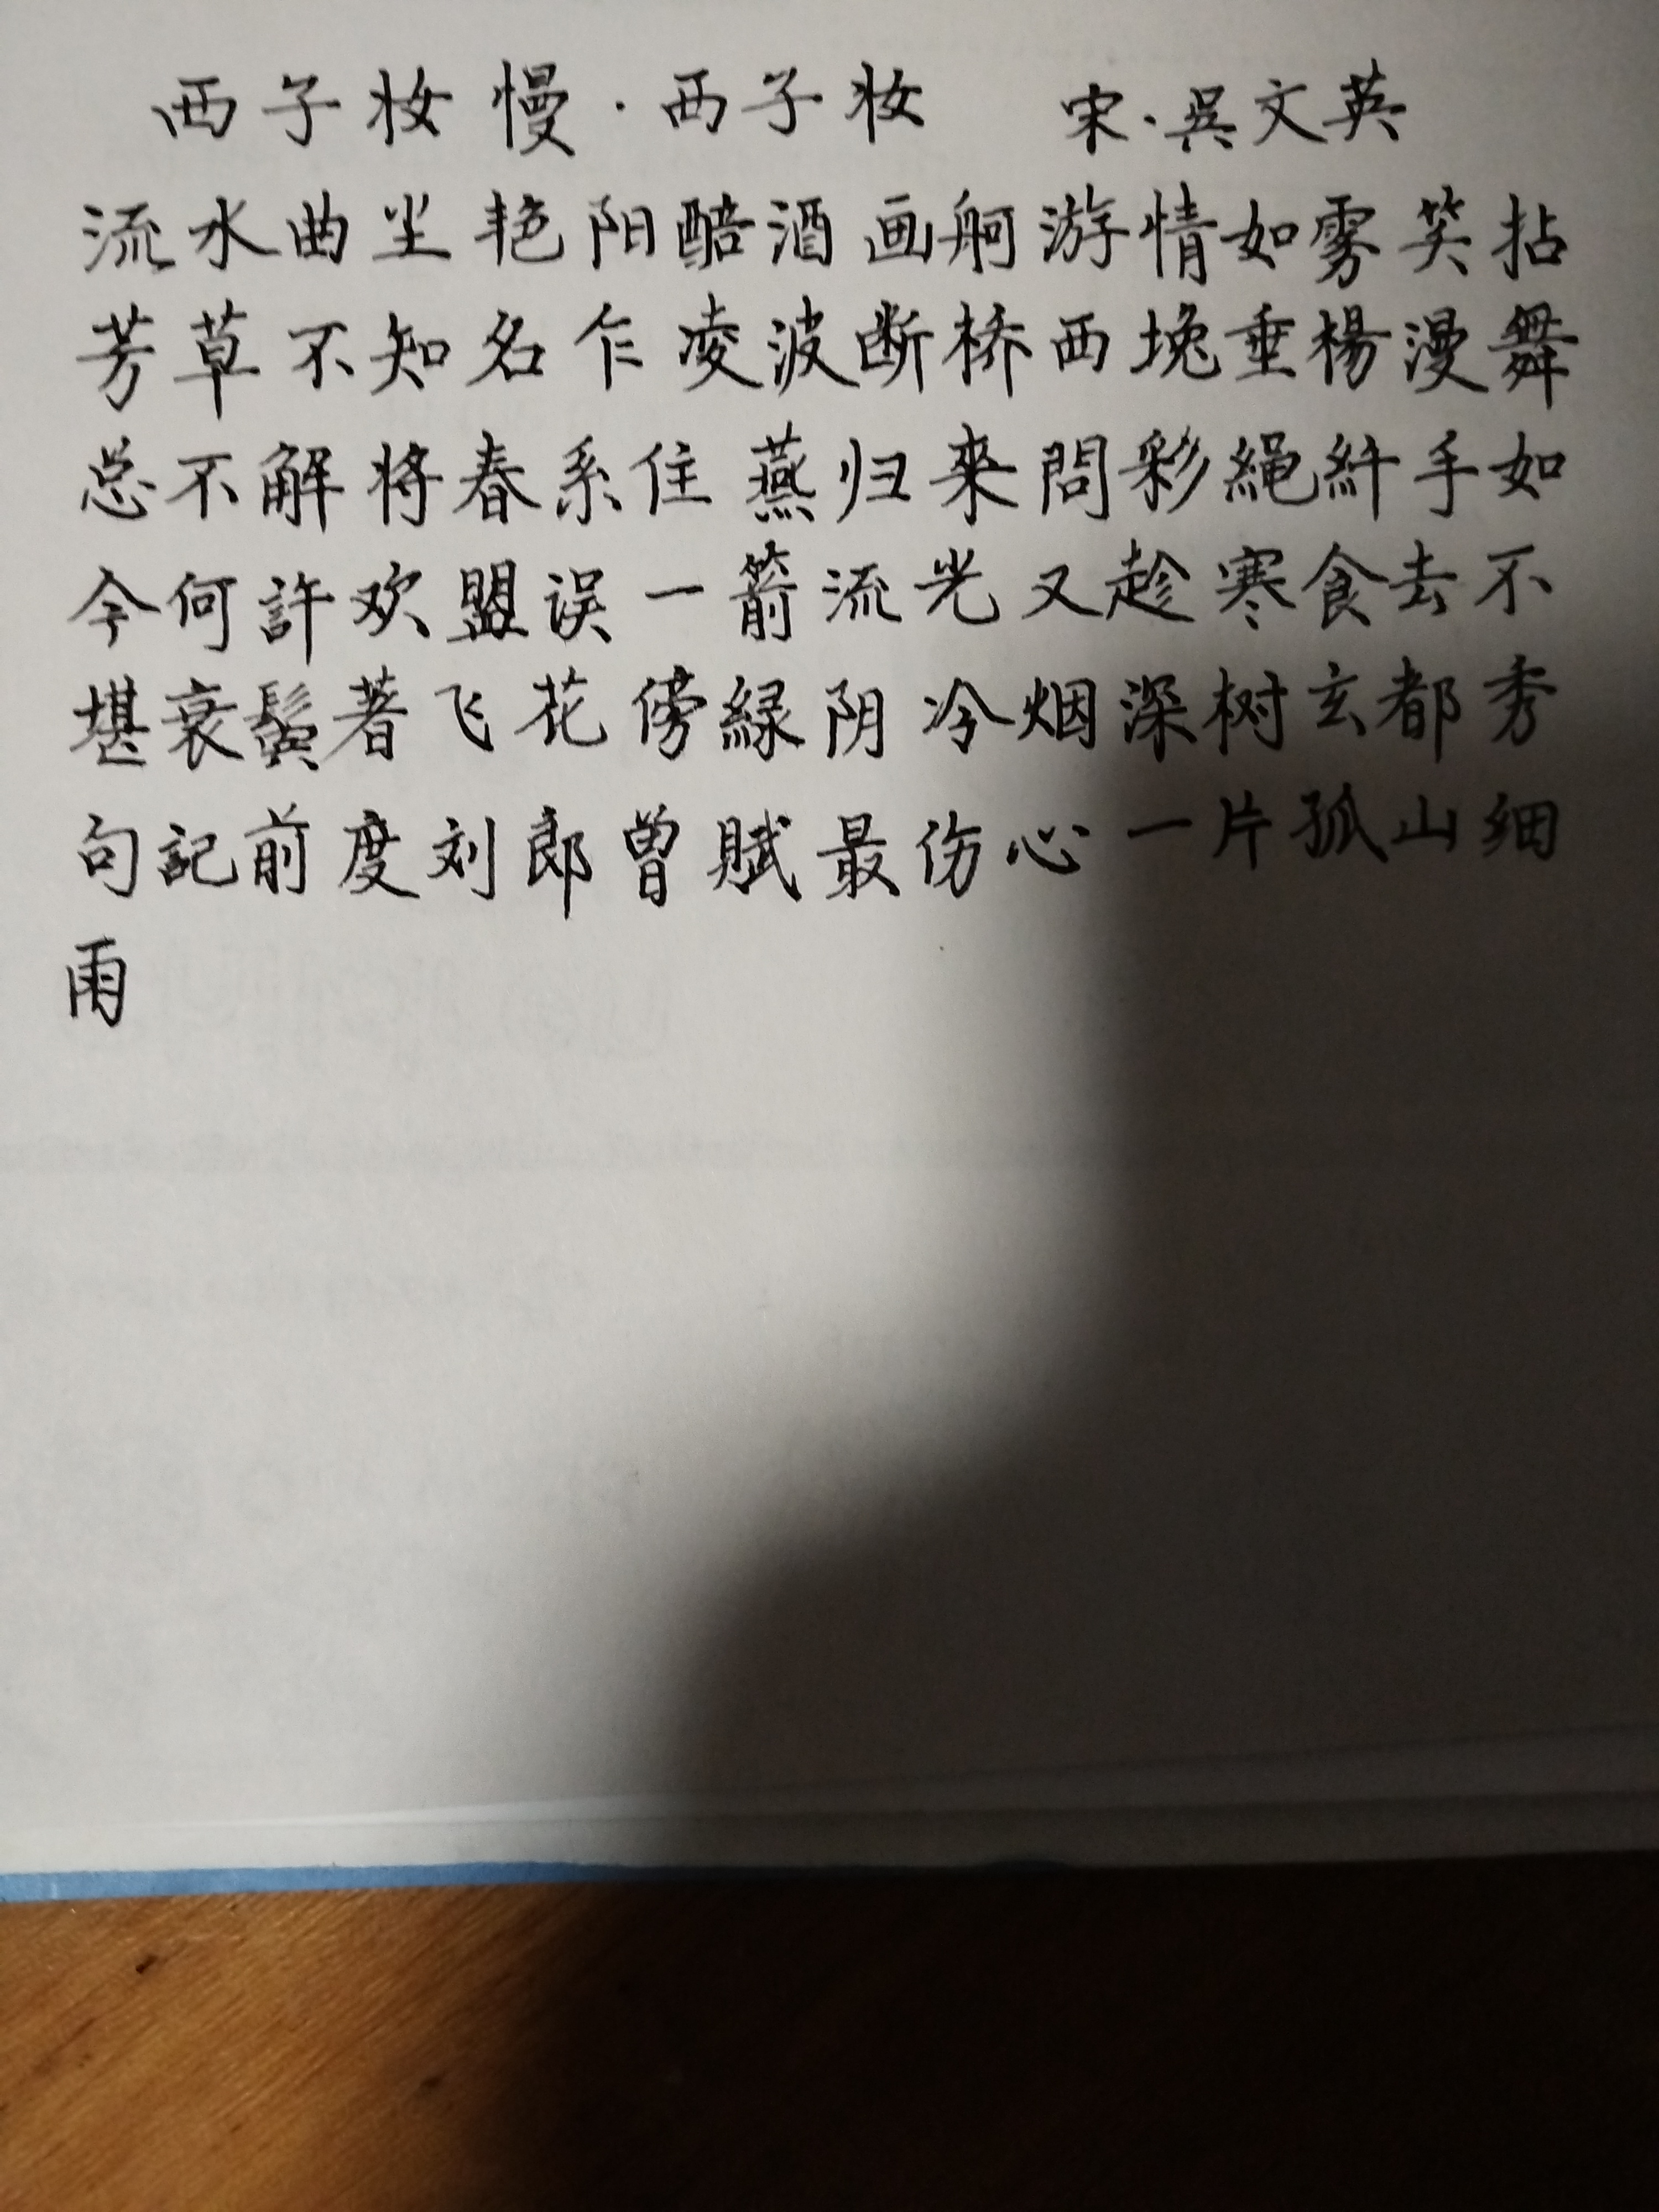 西子妆慢·西子妆 宋·吳文英
流水曲尘艳阳醅酒画舸游情如雾笑拈
芳草不知名乍凌波断桥西堍垂楊漫舞
总不解将春系住燕归來問彩繩纤手如
今何許欢盟误一箭流光又趁寒食去不
堪衰鬓著飞花傍緑阴冷烟深树玄都秀
句記前度刘郎曾賦最伤心一片孤山细
雨